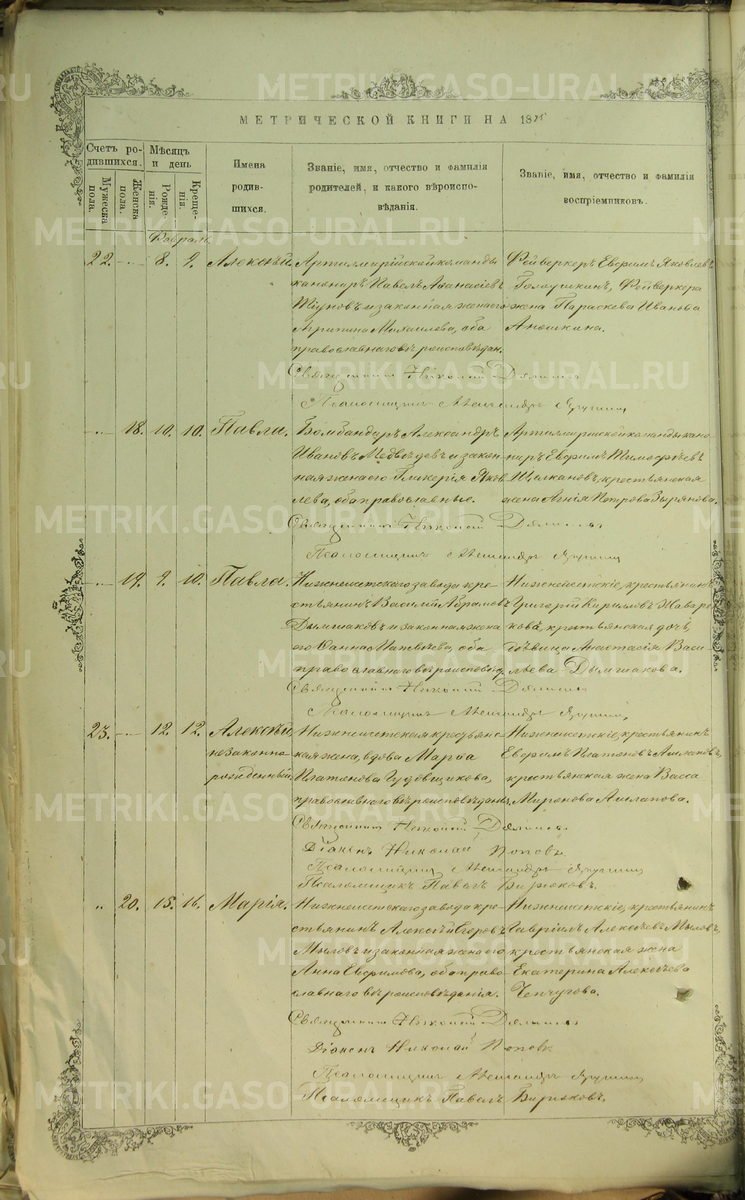 METRIKI.GASO-URAL.RU
МЕТРИЧЕСКОЙ КНИГИ НА 18
Счетъ родившихся.
Мужеска пола.
Женска пола.
Мѣсяцъ и день
Рожденія.
Крещенія.
Имена родившихся.
Званіе, имя, отчество и фамилія родителей, и какого вѣроисповѣданія.
Званіе, имя, отчество и фамилія воспріемниковъ.
22. 8. 9. Алексѣй.
Артиллерійской команды
канониръ Павелъ Аѳанасіевъ
и законная жена его
Агрипина Михаилова, оба
православнаго вѣроисповѣдан.
Фейверкеръ Евфимъ Яковлевъ
Голоушкинъ, Фейверкера
жена Параскева Иванова
Аношкина.
Священникъ Николай
Псаломщикъ Александръ
18. 10. 10. Павла.
Бомбандиръ Александръ
Ивановъ Медвѣдевъ и закон
ная жена его Гликерія Яков
лева, оба православные.
Артиллерійской команды кано
ниръ Евфимъ Тимоѳѣевъ
крестьянская
жена Агнія Петрова Зырянова.
Священникъ Николай
Псаломщикъ Александръ
19. 9. 10. Павла.
Нижнеисетскаго завода кре
стьянинъ Василій Абрамовъ
Дымшаковъ и законная жена
его оба
православнаго вѣроисповѣд.
Нижнеисетскіе, крестьянинъ
Григорій Кирилловъ
крестьянская дочь
дѣвица Анастасія Васи
льева Дымшакова.
Священникъ Николай
Псаломщикъ Александръ
23. 12. 12. Алексѣй
незаконно
рожденный.
Нижнеисетская крестьянс
кая жена, вдова Марѳа
Платонова Чудовщикова,
православнаго вѣроисповѣданія.
Нижнеисетскіе, крестьянинъ
Евфимъ
крестьянская жена Васса
Миронова
Священникъ Николай
Діаконъ Николай Поповъ
Псаломщикъ Александръ
Псаломщикъ Павелъ Бирюковъ.
20. 15. 16. Марія.
Нижнеисетскаго завода кре
стьянинъ Алексѣй Егоровъ
Мыловъ и законная жена его
Анна Евфимова, оба право
славнаго вѣроисповѣданія.
Нижнеисетскіе, крестьянинъ
Гавріилъ Алексѣевъ Мыловъ,
крестьянская жена
Екатерина Алексѣева
Чепчугова.
Священникъ Николай
Діаконъ Николай Поповъ
Псаломщикъ Александръ
Псаломщикъ Павелъ Бирюковъ.